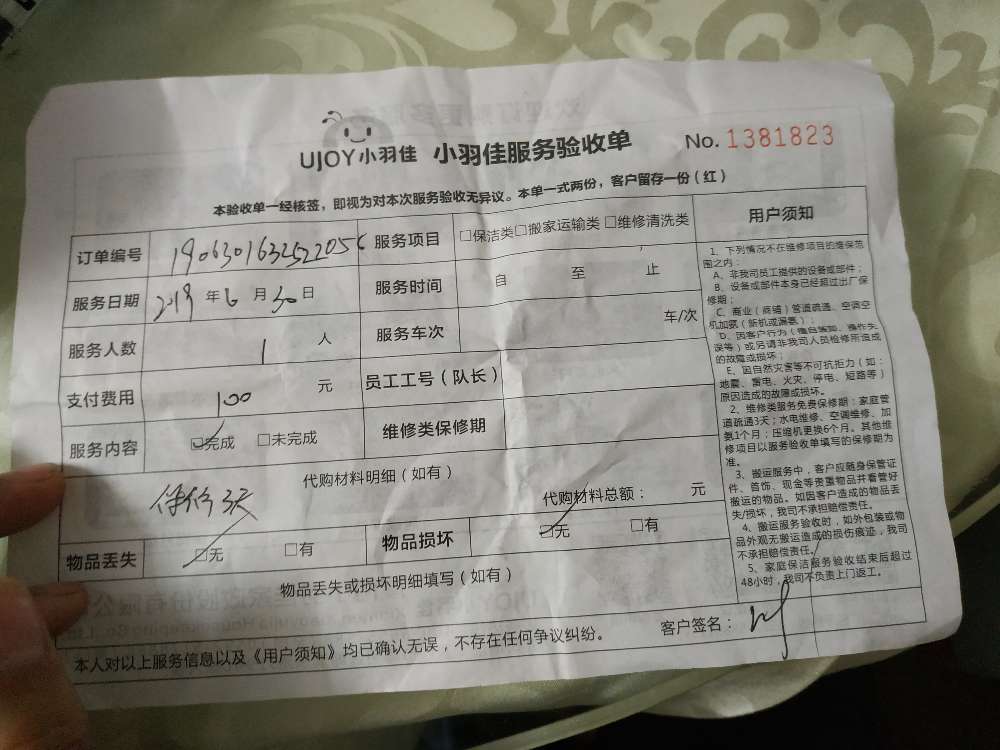 UJOY小羽佳 小羽佳服务验收单 No. 1381823
本验收单一经核签，即视为对本次服务验收无异议。本单一式两份，客户留存一份（红）
订单编号 190630163252205 服务项目 □保洁类□搬家运输类 □维修清洗类
服务日期 2019 年 6 月 30 日 服务时间 自 至 止
服务人数 1 人 服务车次 车/次
支付费用 100 元 员工工号（队长）
服务内容 ☑完成 □未完成 维修类保修期
代购材料明细（如有）
3天
代购材料总额： 元
物品丢失 ☑无 □有 物品损坏 ☑无 □有
物品丢失或损坏明细填写（如有）
本人对以上服务信息以及《用户须知》均已确认无误，不存在任何争议纠纷。 客户签名：
用户须知
1、下列情况不在维修项目的维保范
围之内：
A、非我司员工提供的设备或部件；
B、设备或部件本身已经超过出厂保
修期；
C、商业（商铺）管道疏通、空调空
机加氨（新机或漏氨）；
D、因客户行为（擅自增加、操作失
误等）或另请非我司人员检修所造成
的故障或损坏；
E、因自然灾害等不可抗拒力（如：
地震、雷电、火灾、停电、短路等）
原因造成的故障或损坏。
2、维修类服务免费保修期：家庭管
道疏通3天；水电维修、空调维修、加
氨1个月；压缩机更换6个月。其他维
修项目以服务验收单填写的保修期为
准。
3、搬运服务中，客户应随身保管证
件、首饰、现金等贵重物品并看管好
搬运的物品。如因客户造成的物品丢
失/损坏，我司不承担赔偿责任。
4、搬运服务验收时，如外包装或物
品外观无搬运造成的损伤痕迹，我司
不承担赔偿责任。
5、家庭保洁服务验收结束后超过
48小时，我司不负责上门返工。